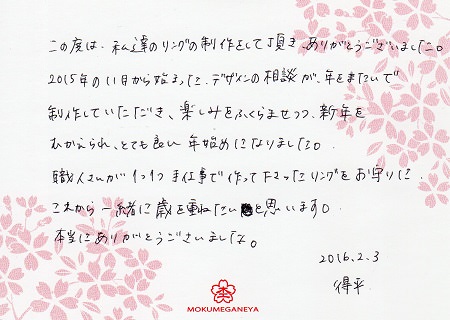 この度は、私達のリングの制作をして頂き、ありがとうございました。
2015年の11月から始まった、デザインの相談が、年をまたいで
制作していただき、楽しみをふくらませつつ、新年を
むかえられ、とても良い年始めになりました。
職人さんが1つ1つ手仕事で作って下さったリングをお守りに、
これから一緒に歳を重ねたいと思います。
本当にありがとうございました。
2016.2.3
得平
MOKUMEGANEYA